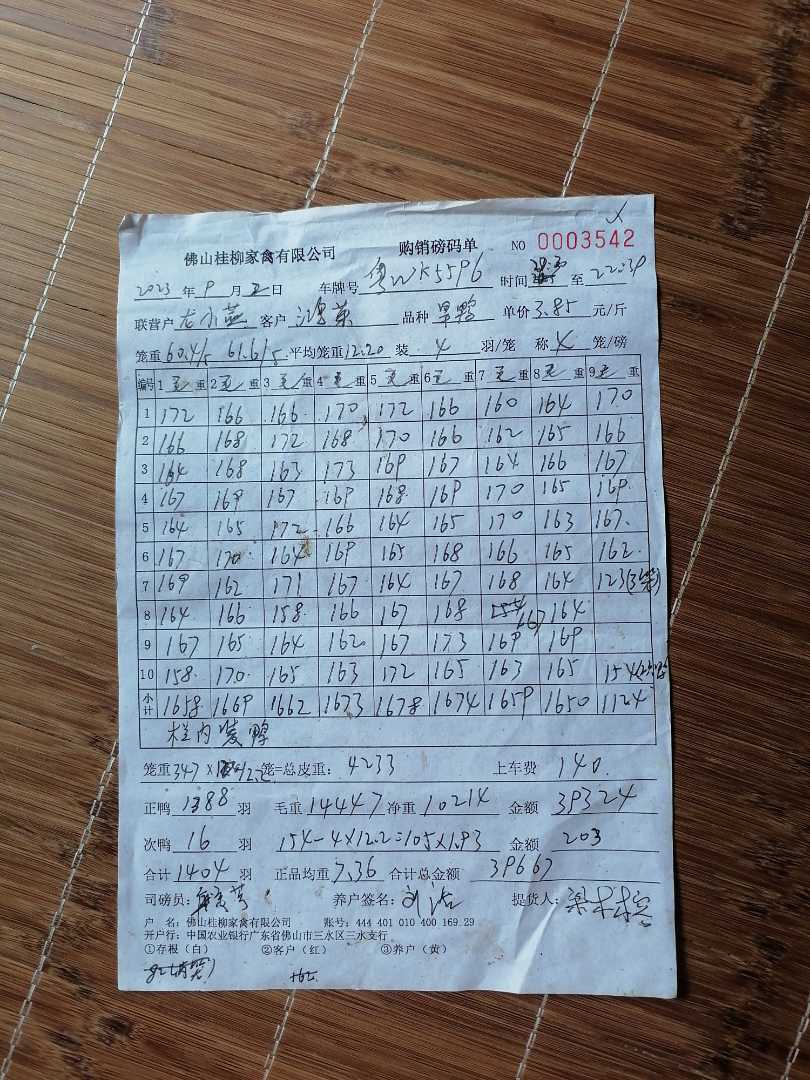 佛山桂柳家禽有限公司 购销磅码单 NO 0003542
2023 年 9 月 日 车牌号 粤WK5596 时间 20:30 至 22:30
联营户 左小燕 客户 鸿英 品种 旱鸭 单价 3.85 元/斤
笼重 60.4/5 61.6/5 平均笼重 12.20 装 4 羽/笼 称 4 笼/磅
编号 1 毛重 2 毛重 3 毛重 4 毛重 5 毛重 6 毛重 7 毛重 8 毛重 9 毛重
1 172 166 166 170 172 166 160 164 170
2 166 168 172 168 170 166 162 165 166
3 164 168 163 173 169 167 164 166 167
4 167 169 167 169 168 169 170 165 169
5 164 165 172 166 164 165 170 163 167
6 167 170 164 169 165 168 166 165 162
7 169 162 171 167 164 167 168 164 123(3笼)
8 164 166 158 166 167 168 167 164
9 167 165 164 162 167 173 169 169
10 158 170 165 163 172 165 163 165 154
小计 1658 1669 1662 1673 1678 1674 1659 1650 1124
栏内装鸭
笼重 347 × 12.2 笼=总皮重: 4233 上车费 140
正鸭 1388 羽 毛重 14447 净重 10214 金额 39324
次鸭 16 羽 154-4×12.2=105×1.93 金额 203
合计 1404 羽 正品均重 7.36 合计总金额 39667
司磅员: 养户签名: 提货人:
户 名: 佛山桂柳家禽有限公司 账号: 444 401 010 400 169 29
开户行: 中国农业银行广东省佛山市三水区三水支行
①存根(白) ②客户(红) ③养户(黄)